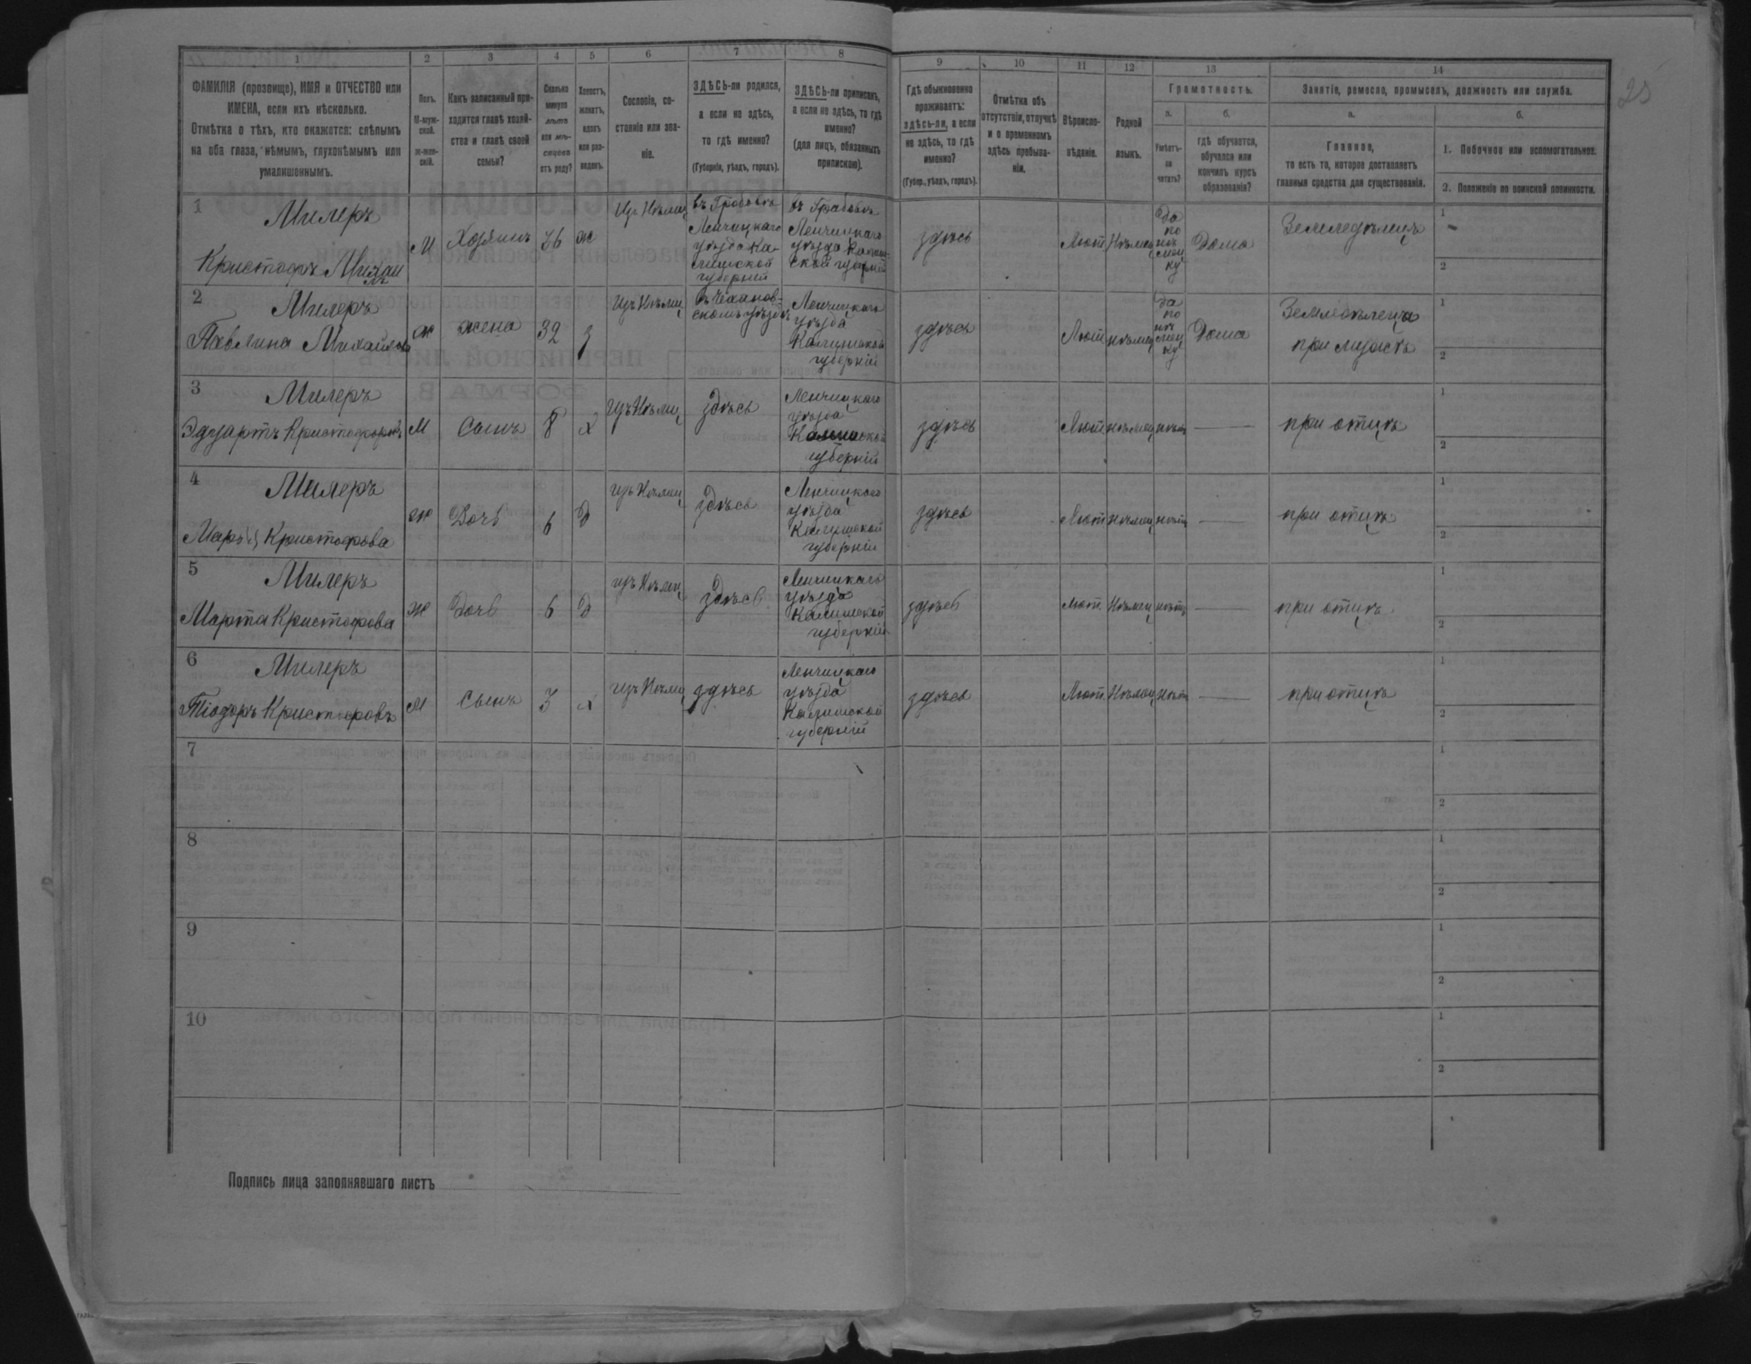 1 2 3 4 5 6 7 8 9 10 11 12 13 14
ФАМИЛІЯ (прозвище), ИМЯ и ОТЧЕСТВО или
ИМЕНА, если ихъ нѣсколько.
Отмѣтка о тѣхъ, кто окажется: слѣпымъ
на оба глаза, нѣмымъ, глухонѣмымъ или
умалишеннымъ.
Полъ.
М-муж-
ской.
ж-жен-
скій.
Какъ записанный при-
ходится главѣ хозяй-
ства и главѣ своей
семьи?
Сколько
минуло
лѣтъ
или мѣ-
сяцевъ
отъ роду?
Холостъ,
женатъ,
вдовъ
или раз-
веденъ.
Сословіе, со-
стояніе или зва-
ніе.
ЗДѢСЬ-ли родился,
а если не здѣсь,
то гдѣ именно?
(Губернія, уѣздъ, городъ).
ЗДѢСЬ-ли приписанъ,
а если не здѣсь, то гдѣ
именно?
(для лицъ, обязанныхъ
припискою).
Гдѣ обыкновенно
проживаетъ:
здѣсь-ли, а если
не здѣсь, то гдѣ
именно?
(Губер., уѣздъ, городъ).
Отмѣтка объ
отсутствіи, отлучкѣ
и о временномъ
здѣсь пребыва-
ніи.
Вѣроиспо-
вѣданіе.
Родной
языкъ.
Грамотность.
а.
Умѣетъ-
ли
читать?
б.
гдѣ обучается,
обучался или
кончилъ курсъ
образованія?
Занятіе, ремесло, промыселъ, должность или служба.
а.
Главное,
то есть то, которое доставляетъ
главныя средства для существованія.
б.
1. Побочное или вспомогательное.
2. Положеніе по воинской повинности.
25
1
Милеръ
Кристофъ
М
Хозяинъ
36
ж
Изъ Нѣмец
въ Грабовѣ
Ленчицкаго
уѣзда Ка-
лишской
губерніи
въ Грабовѣ
Ленчицкаго
уѣзда Калиш
ской губерніи
здѣсь
Лют
Нѣмец
Да
по
нѣ
мец
ку
Дома
Земледѣлецъ
1
2
2
Милеръ
Павлина
ж
жена
32
з
Изъ Нѣмец
Ленчицкаго
уѣзда
Калишской
губерніи
здѣсь
Лют
нѣмец
да
по
нѣ
мец
ку
Дома
при мужѣ
1
2
3
Милеръ
Эдуартъ Кристофоровъ
М
Сынъ
8
х
изъ Нѣмец
здѣсь
Ленчицкаго
уѣзда
Калишской
губерніи
здѣсь
Лют
нѣмец
нѣтъ
при отцѣ
1
2
4
Милеръ
Кристофова
ж
Дочь
6
Д
изъ Нѣмец
здѣсь
Ленчицкаго
уѣзда
Калишской
губерніи
здѣсь
Лют
нѣмец
нѣтъ
при отцѣ
1
2
5
Милеръ
Марта Кристофова
ж
Дочь
6
Д
изъ Нѣмец
здѣсь
Ленчицкаго
уѣзда
Калишской
губерніи
здѣсь
Лют
Нѣмец
нѣтъ
при отцѣ
1
2
6
Милеръ
Тіодоръ Кристофровъ
М
Сынъ
3
х
изъ Нѣмец
здѣсь
Ленчицкаго
уѣзда
Калишской
губерніи
здѣсь
Лют
Нѣмец
нѣтъ
при отцѣ
1
2
7
1
2
8
1
2
9
1
2
10
1
2
Подпись лица заполнявшаго листъ